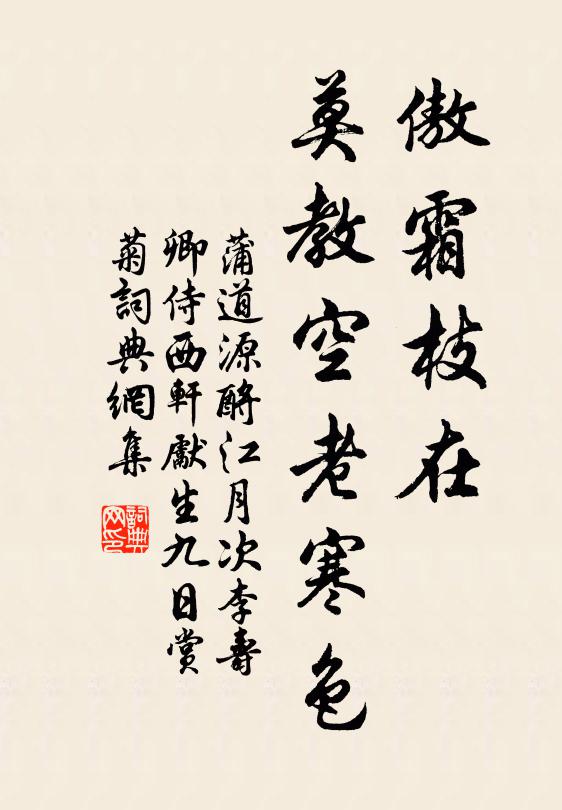 傲霜枝在
莫教空老寒色
蒲道源酹江月次李壽
卿侍西軒獻生九日賞
菊詞典網集
詞典网印